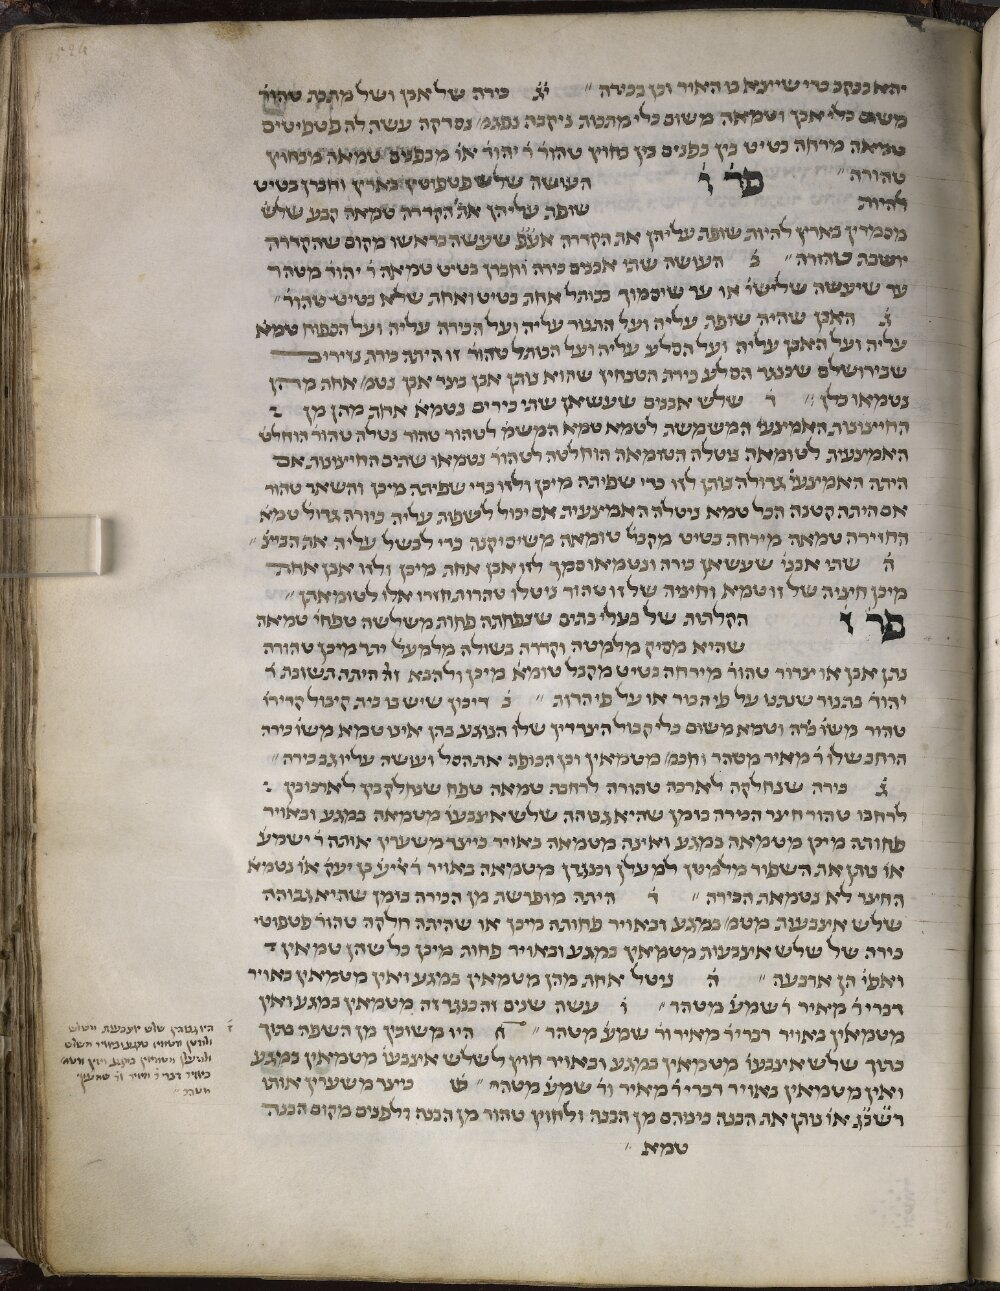 יהא בנקב כדי שיוצא בו האיר וכן בכירה ״ יג כירה של אבן ושל מתכת טהור׳
משום כלי אבן וטמאה משום כלי מתכות ניקבה נפגמ׳ נסדקה עשה לה פטפיטים
טמאה מרחה בטיט בין בפנים בין בחוץ טהור׳ ר׳ יהוד׳ או׳ מבפנים טמאה מבחוץ
טהורה ״
פר׳ ו׳ העושה שלש פטפוטין בארץ וחברן בטיט
להיות שופת עליהן את הקדרה טמאה קבע שלש
מסמרין בארץ להיות שופת עליהן את הקדרה אע״פ שעשה בראשו מקום שהקדרה
יושבת טהורה ״ ב׳ העושה שתי אבנים כירה וחברן בטיט טמאה ר׳ יהוד׳ מטהר
עד שיעשה שלישי׳ או עד שיסמוך בכותל אחת בטיט ואחת שלא בטיט טהור׳ ״
ג׳ האבן שהיה שופת עליה ועל התנור עליה ועל הכירה עליה ועל הכפוח טמא
עליה ועל האבן עליה ועל הסלע עליה ועל הכותל טהור׳ זו היתה כירת נזירים
שבירושלם שכנגד הסלע כירת הטבחין שהוא נותן אבן בצד אבן נטמ׳ אחת מהן
נטמאו כלן ״ ד׳ שלש אבנים שעשאן שתי כירים נטמא אחת מהן מן
החיצונות האמיצעי׳ המשמשת לטמא טמא המשמ׳ לטהור טהור נטלה טהור הוחלט
האמיצעית לטומאה נוטלה הטומאה הוחלטה לטהור׳ נטמאו שתים החיצונות אם
היתה האמיצעי׳ גדולה נותן לזו כדי שפיתה מיכן ולזו כדי שפיתה מיכן והשאר טהור
אם היתה קטנה הכל טמא ניטלה האמיצעית אם יכול לשפות עליה כיורה גדול טמא
החזירה טמאה מירחה בטיט מקבל׳ טומאה משיסיקנה כדי לבשל עליה את הביצ׳ ״
ה׳ שתי אבני׳ שעשאן כירה ונטמאו סמך לזו אבן אחת מיכן ולזו אבן אחת
מיכן חיציה של זו טמא וחיציה של זו טהור ניטלו טהרות חזרו אלו לטומאתן ״
פר׳ ז׳ הקלתות של בעלי בתים שנפחתה פחות משלשה טפחי׳ טמאה
שהיא מסיק מלמטה וקדרה בשולה מלמעל׳ יתר מיכן טהורה
נתן אבן או צרור טהור׳ מירחה בטיט מקבל טומא׳ מיכן ולהבא זו היתה תשובת ר׳
יהוד׳ בתנור שנתנו על פי הבור או על פי הדות ״ ב׳ דיכון שיש בו בית קיבול קדירו׳
טהור משו׳ כירה וטמא משום כלי קבול הצדדין שלו הנוגע בהן אינו טמא משו׳ כירה
הרחב שלו ר׳ מאיר מטהר וחכמ׳ מטמאין וכן הכופה את הסל ועושה עליו גב כירה ״
ג׳ כירה שנחלקה לארכה טהורה לרחבה טמאה טפח שנחלק בין לארכו בין
לרחבו טהור חיצר הכירה בזמן שהיא גבוהה שלש איצבעו׳ מטמאה במגע ובאויר
פחותה מיכן מטמאה במגע ואינה מטמאה באויר כיצד משערין אותה ר׳ ישמע׳
או׳ נותן את השפוד מלמטן למעלן וכנגדן מטמאה באויר ר׳ אליע׳ בן יעק׳ או׳ נטמא
החיצר לא נטמאת הכירה ״ ד׳ היתה מופרשת מן הכירה בזמן שהיא גבוהה
שלש איצבעות מטמ׳ במגע ובאויר פחותה מיכן או שהיתה חלקה טהור׳ פטפוטי
כירה של שלש איצבעות מטמאין במגע ובאויר פחות מיכן כל שהן טמאין
ואפי׳ הן ארבעה ״ ה׳ ניטל אחת מהן מטמאין במגע ואין מטמאין באויר
דברי ר׳ מאיר ר׳ שמע׳ מטהר ״ ו׳ עשה שנים זה כנגד זה מטמאין במגע ואין
מטמאין באויר דברי ר׳ מאיר ור׳ שמע׳ מטהר ״ היו משוכין מן השפה בתוך
בתוך שלש איצבעו׳ מטמאין במגע ובאויר חוץ לשלש איצבעו׳ מטמאין במגע
ואין מטמאין באויר דברי ר׳ מאיר ור׳ שמע׳ מטהר ״ כיצד משערין אותו
רשב״ג או׳ נותן את הכנה ביניהם מן הכנה ולחוץ טהור מן הכנה ולפנים מקום הכנה
טמא ״
היו גבוהין שלש איצבעות השלש